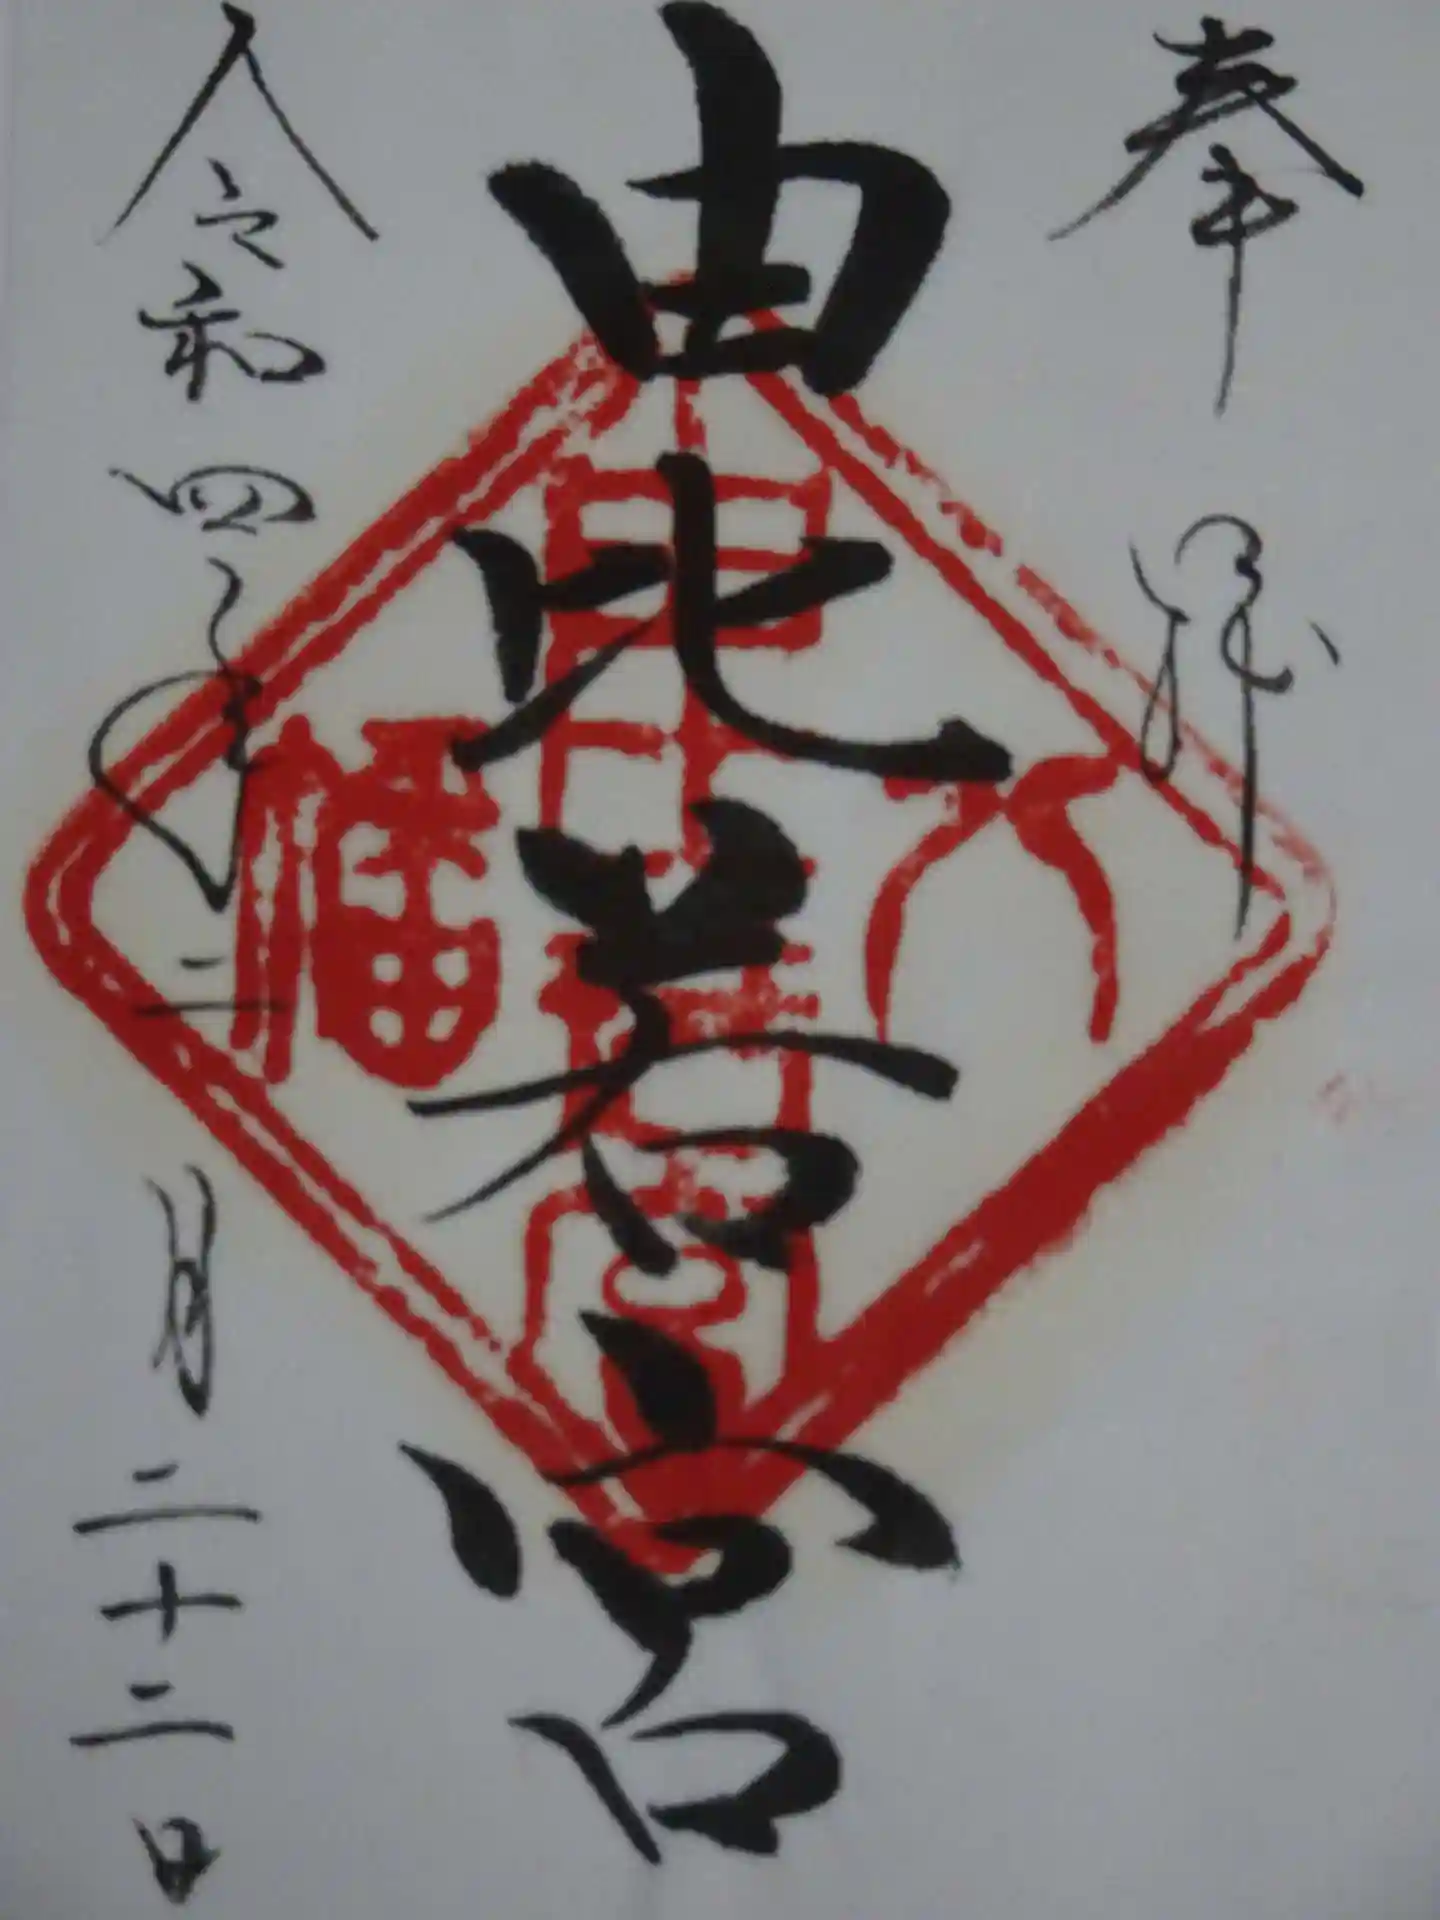 奉拝
由比若宮
八幡
令和四年二月二十二日